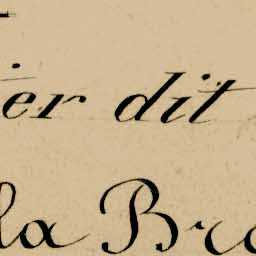 ier dit
la Bro